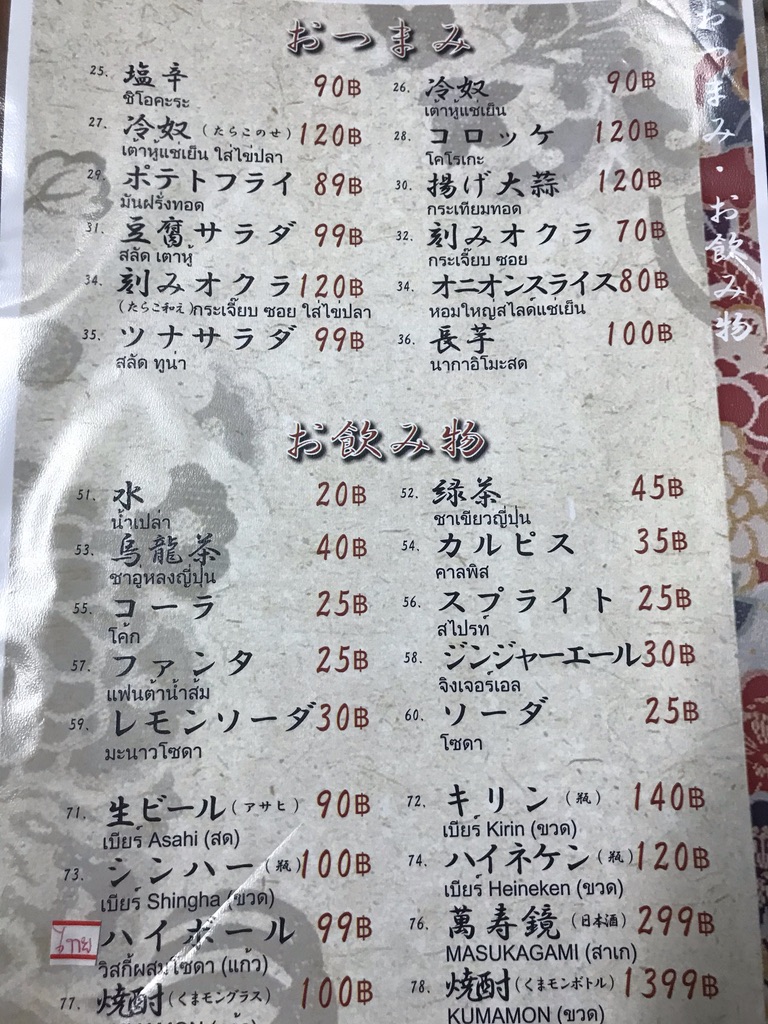 おつまみ
25. 塩辛 90฿
ชิโอคะระ
26. 冷奴 90฿
เต้าหู้แช่เย็น
27. 冷奴 (たらこのせ) 120฿
เต้าหู้แช่เย็น ใส่ไข่ปลา
28. コロッケ 120฿
โคโรเกะ
29. ポテトフライ 89฿
มันฝรั่งทอด
30. 揚げ大蒜 120฿
กระเทียมทอด
31. 豆腐サラダ 99฿
สลัด เต้าหู้
32. 刻みオクラ 70฿
กระเจี๊ยบ ซอย
34. 刻みオクラ 120฿
(たらこ和え) กระเจี๊ยบ ซอย ใส่ไข่ปลา
34. オニオンスライス 80฿
หอมใหญ่สไลด์แช่เย็น
35. ツナサラダ 99฿
สลัด ทูน่า
36. 長芋 100฿
นากาอิโมะสด
お飲み物
51. 水 20฿
น้ำเปล่า
52. 緑茶 45฿
ชาเขียวญี่ปุ่น
53. 烏龍茶 40฿
ชาอู่หลงญี่ปุ่น
54. カルピス 35฿
คาลพิส
55. コーラ 25฿
โค้ก
56. スプライト 25฿
สไปรท์
57. ファンタ 25฿
แฟนต้าน้ำส้ม
58. ジンジャーエール 30฿
จิงเจอร์เอล
59. レモンソーダ 30฿
มะนาวโซดา
60. ソーダ 25฿
โซดา
71. 生ビール (アサヒ) 90฿
เบียร์ Asahi (สด)
72. キリン (瓶) 140฿
เบียร์ Kirin (ขวด)
73. シンハー (瓶) 100฿
เบียร์ Shingha (ขวด)
74. ハイネケン (瓶) 120฿
เบียร์ Heineken (ขวด)
ไทย ハイボール 99฿
วิสกี้ผสมโซดา (แก้ว)
76. 萬寿鏡 (日本酒) 299฿
MASUKAGAMI (สาเก)
77. 焼酎 (くまモングラス) 100฿
78. 焼酎 (くまモンボトル) 1399฿
KUMAMON (ขวด)
おつまみ・お飲み物